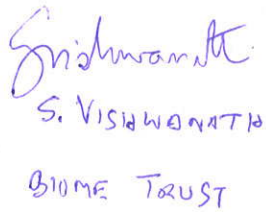 SVishwanath
S. VISHWANATH
BIOME TRUST